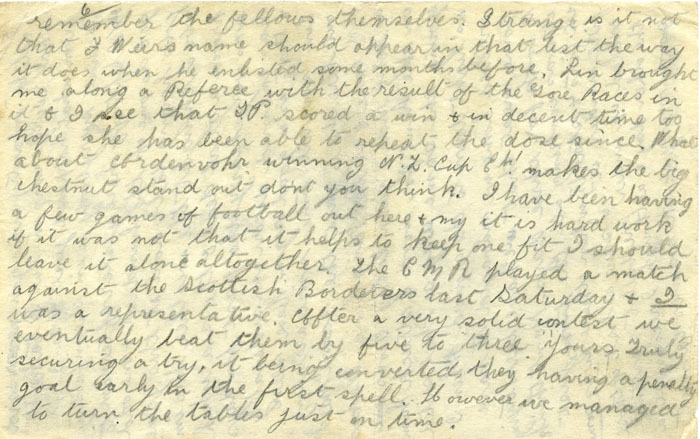 remember the fellows themselves. Strange is it not
that J Weirs name should appear in that list the way
it does when he enlisted some months before. Lin brought
me along a Referee with the result of the Gore Races in
it & I see that J.P. scored a win & in decent time too
hope she has been able to repeat the dose since. What
about Ardenvohr winning N.Z. Cup Eh! makes the big
chestnut stand out dont you think. I have been having
a few games of football out here & my it is hard work
if it was not that it helps to keep one fit I should
leave it alone altogether. The C M R played a match
against the Scottish Borderers last Saturday & I
was a representative. After a very solid contest we
eventually beat them by five to three Yours Truly
securing a try, it being converted they having a penalty
goal early in the first spell. However we managed
to turn the tables just in time.